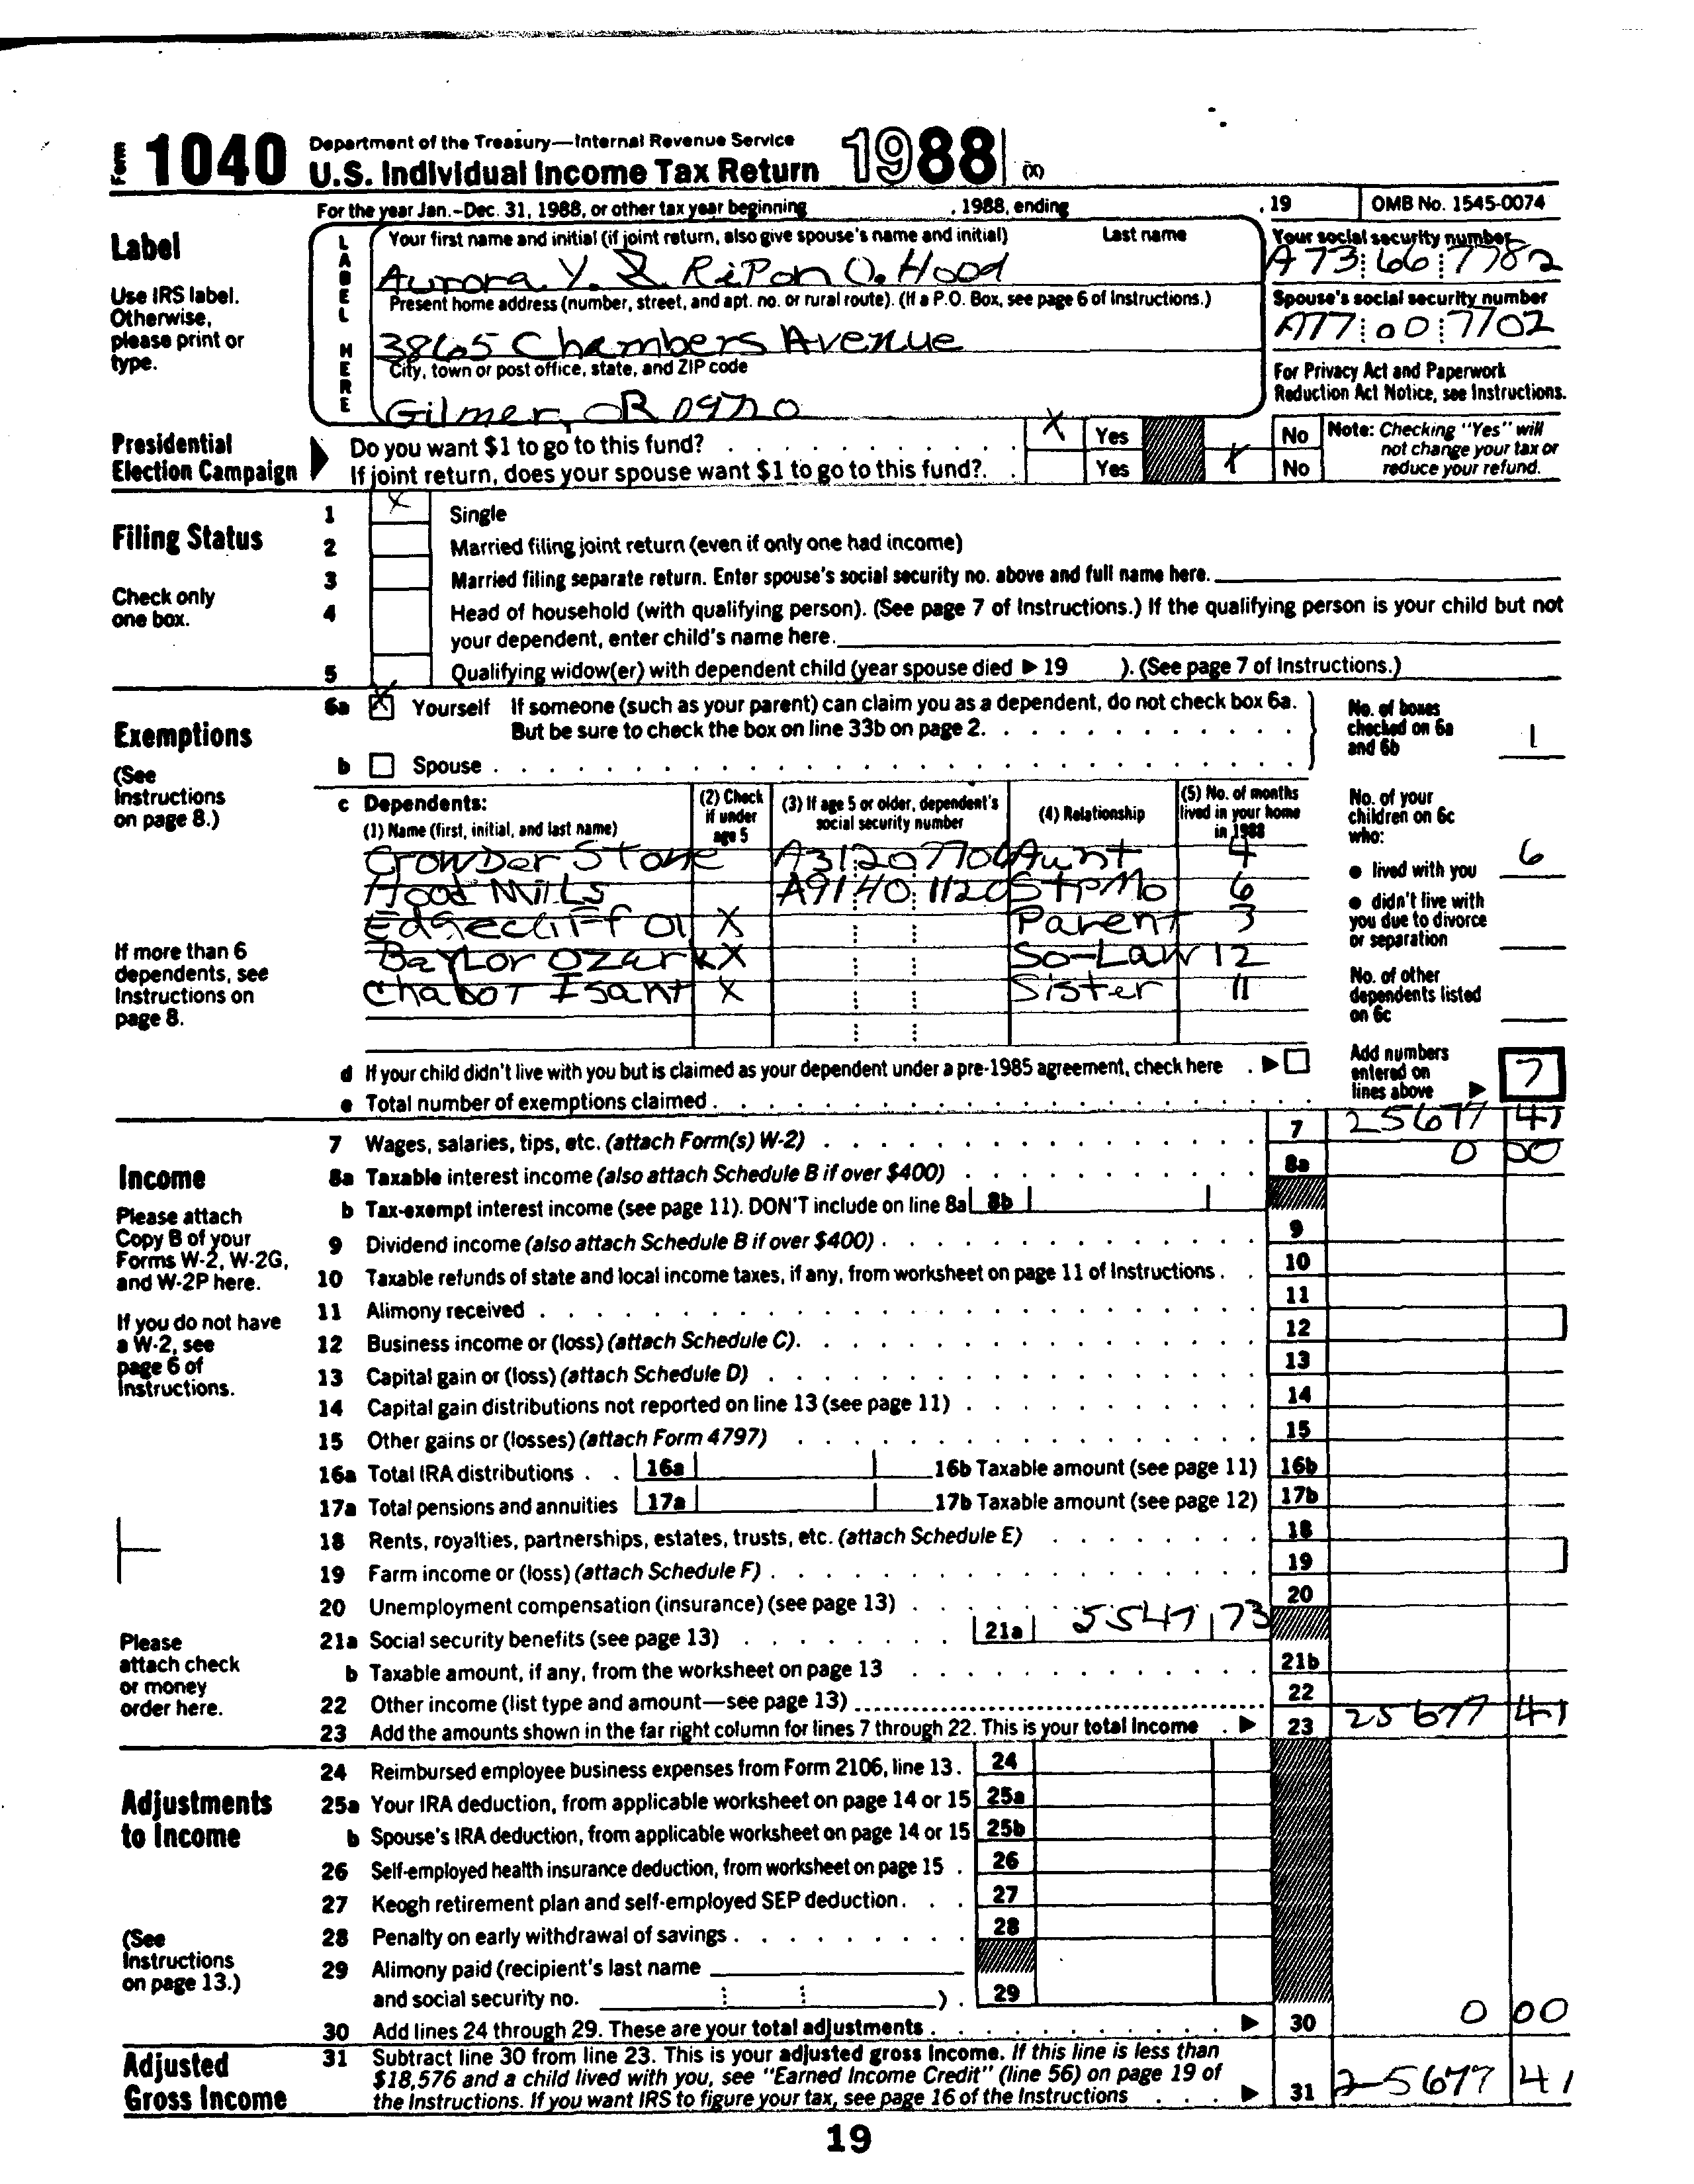 Form 1040 Department of the Treasury—Internal Revenue Service
U.S. Individual Income Tax Return 1988 (X)
For the year Jan.-Dec. 31, 1988, or other tax year beginning , 1988, ending , 19 OMB No. 1545-0074
Label
Use IRS label. Otherwise, please print or type.
LABEL HERE
Your first name and initial (if joint return, also give spouse's name and initial) Last name
Aurora Y. & Ripon O. Hood
Your social security number
A73 66 7782
Present home address (number, street, and apt. no. or rural route). (If a P.O. Box, see page 6 of Instructions.)
3865 Chambers Avenue
Spouse's social security number
A77 00 7702
City, town or post office, state, and ZIP code
Gilmer, OR 09720
For Privacy Act and Paperwork Reduction Act Notice, see Instructions.
Presidential Election Campaign
Do you want $1 to go to this fund? X Yes No
If joint return, does your spouse want $1 to go to this fund? Yes X No
Note: Checking "Yes" will not change your tax or reduce your refund.
Filing Status
Check only one box.
1 X Single
2 Married filing joint return (even if only one had income)
3 Married filing separate return. Enter spouse's social security no. above and full name here.
4 Head of household (with qualifying person). (See page 7 of Instructions.) If the qualifying person is your child but not
your dependent, enter child's name here.
5 Qualifying widow(er) with dependent child (year spouse died ▶ 19 ). (See page 7 of Instructions.)
Exemptions
(See Instructions on page 8.)
6a X Yourself If someone (such as your parent) can claim you as a dependent, do not check box 6a.
But be sure to check the box on line 33b on page 2.
b Spouse
No. of boxes checked on 6a and 6b 1
c Dependents:
(1) Name (first, initial, and last name) (2) Check if under age 5 (3) If age 5 or older, dependent's social security number (4) Relationship (5) No. of months lived in your home in 1988
Crowder Stone A31 20 7706 Aunt 4
Hood Mills A91 40 1120 StpMo 6
Edgecliff Ol X Parent 3
Baylor Ozark X So-Law 12
Chabot Isant X Sister 11
If more than 6 dependents, see Instructions on page 8.
No. of your children on 6c who:
● lived with you 6
● didn't live with you due to divorce or separation
No. of other dependents listed on 6c
d If your child didn't live with you but is claimed as your dependent under a pre-1985 agreement, check here ▶
e Total number of exemptions claimed
Add numbers entered on lines above ▶ 7
Income
Please attach Copy B of your Forms W-2, W-2G, and W-2P here.
If you do not have a W-2, see page 6 of Instructions.
Please attach check or money order here.
7 Wages, salaries, tips, etc. (attach Form(s) W-2) 7 25677 41
8a Taxable interest income (also attach Schedule B if over $400) 8a 0 00
b Tax-exempt interest income (see page 11). DON'T include on line 8a 8b
9 Dividend income (also attach Schedule B if over $400) 9
10 Taxable refunds of state and local income taxes, if any, from worksheet on page 11 of Instructions 10
11 Alimony received 11
12 Business income or (loss) (attach Schedule C) 12
13 Capital gain or (loss) (attach Schedule D) 13
14 Capital gain distributions not reported on line 13 (see page 11) 14
15 Other gains or (losses) (attach Form 4797) 15
16a Total IRA distributions 16a 16b Taxable amount (see page 11) 16b
17a Total pensions and annuities 17a 17b Taxable amount (see page 12) 17b
18 Rents, royalties, partnerships, estates, trusts, etc. (attach Schedule E) 18
19 Farm income or (loss) (attach Schedule F) 19
20 Unemployment compensation (insurance) (see page 13) 20
21a Social security benefits (see page 13) 21a 5547 73
b Taxable amount, if any, from the worksheet on page 13 21b
22 Other income (list type and amount—see page 13) 22
23 Add the amounts shown in the far right column for lines 7 through 22. This is your total income ▶ 23 25677 41
Adjustments to Income
(See Instructions on page 13.)
24 Reimbursed employee business expenses from Form 2106, line 13 24
25a Your IRA deduction, from applicable worksheet on page 14 or 15 25a
b Spouse's IRA deduction, from applicable worksheet on page 14 or 15 25b
26 Self-employed health insurance deduction, from worksheet on page 15 26
27 Keogh retirement plan and self-employed SEP deduction 27
28 Penalty on early withdrawal of savings 28
29 Alimony paid (recipient's last name
and social security no. ) 29
30 Add lines 24 through 29. These are your total adjustments ▶ 30 0 00
Adjusted Gross Income
31 Subtract line 30 from line 23. This is your adjusted gross income. If this line is less than
$18,576 and a child lived with you, see "Earned Income Credit" (line 56) on page 19 of
the Instructions. If you want IRS to figure your tax, see page 16 of the Instructions ▶ 31 25677 41
19